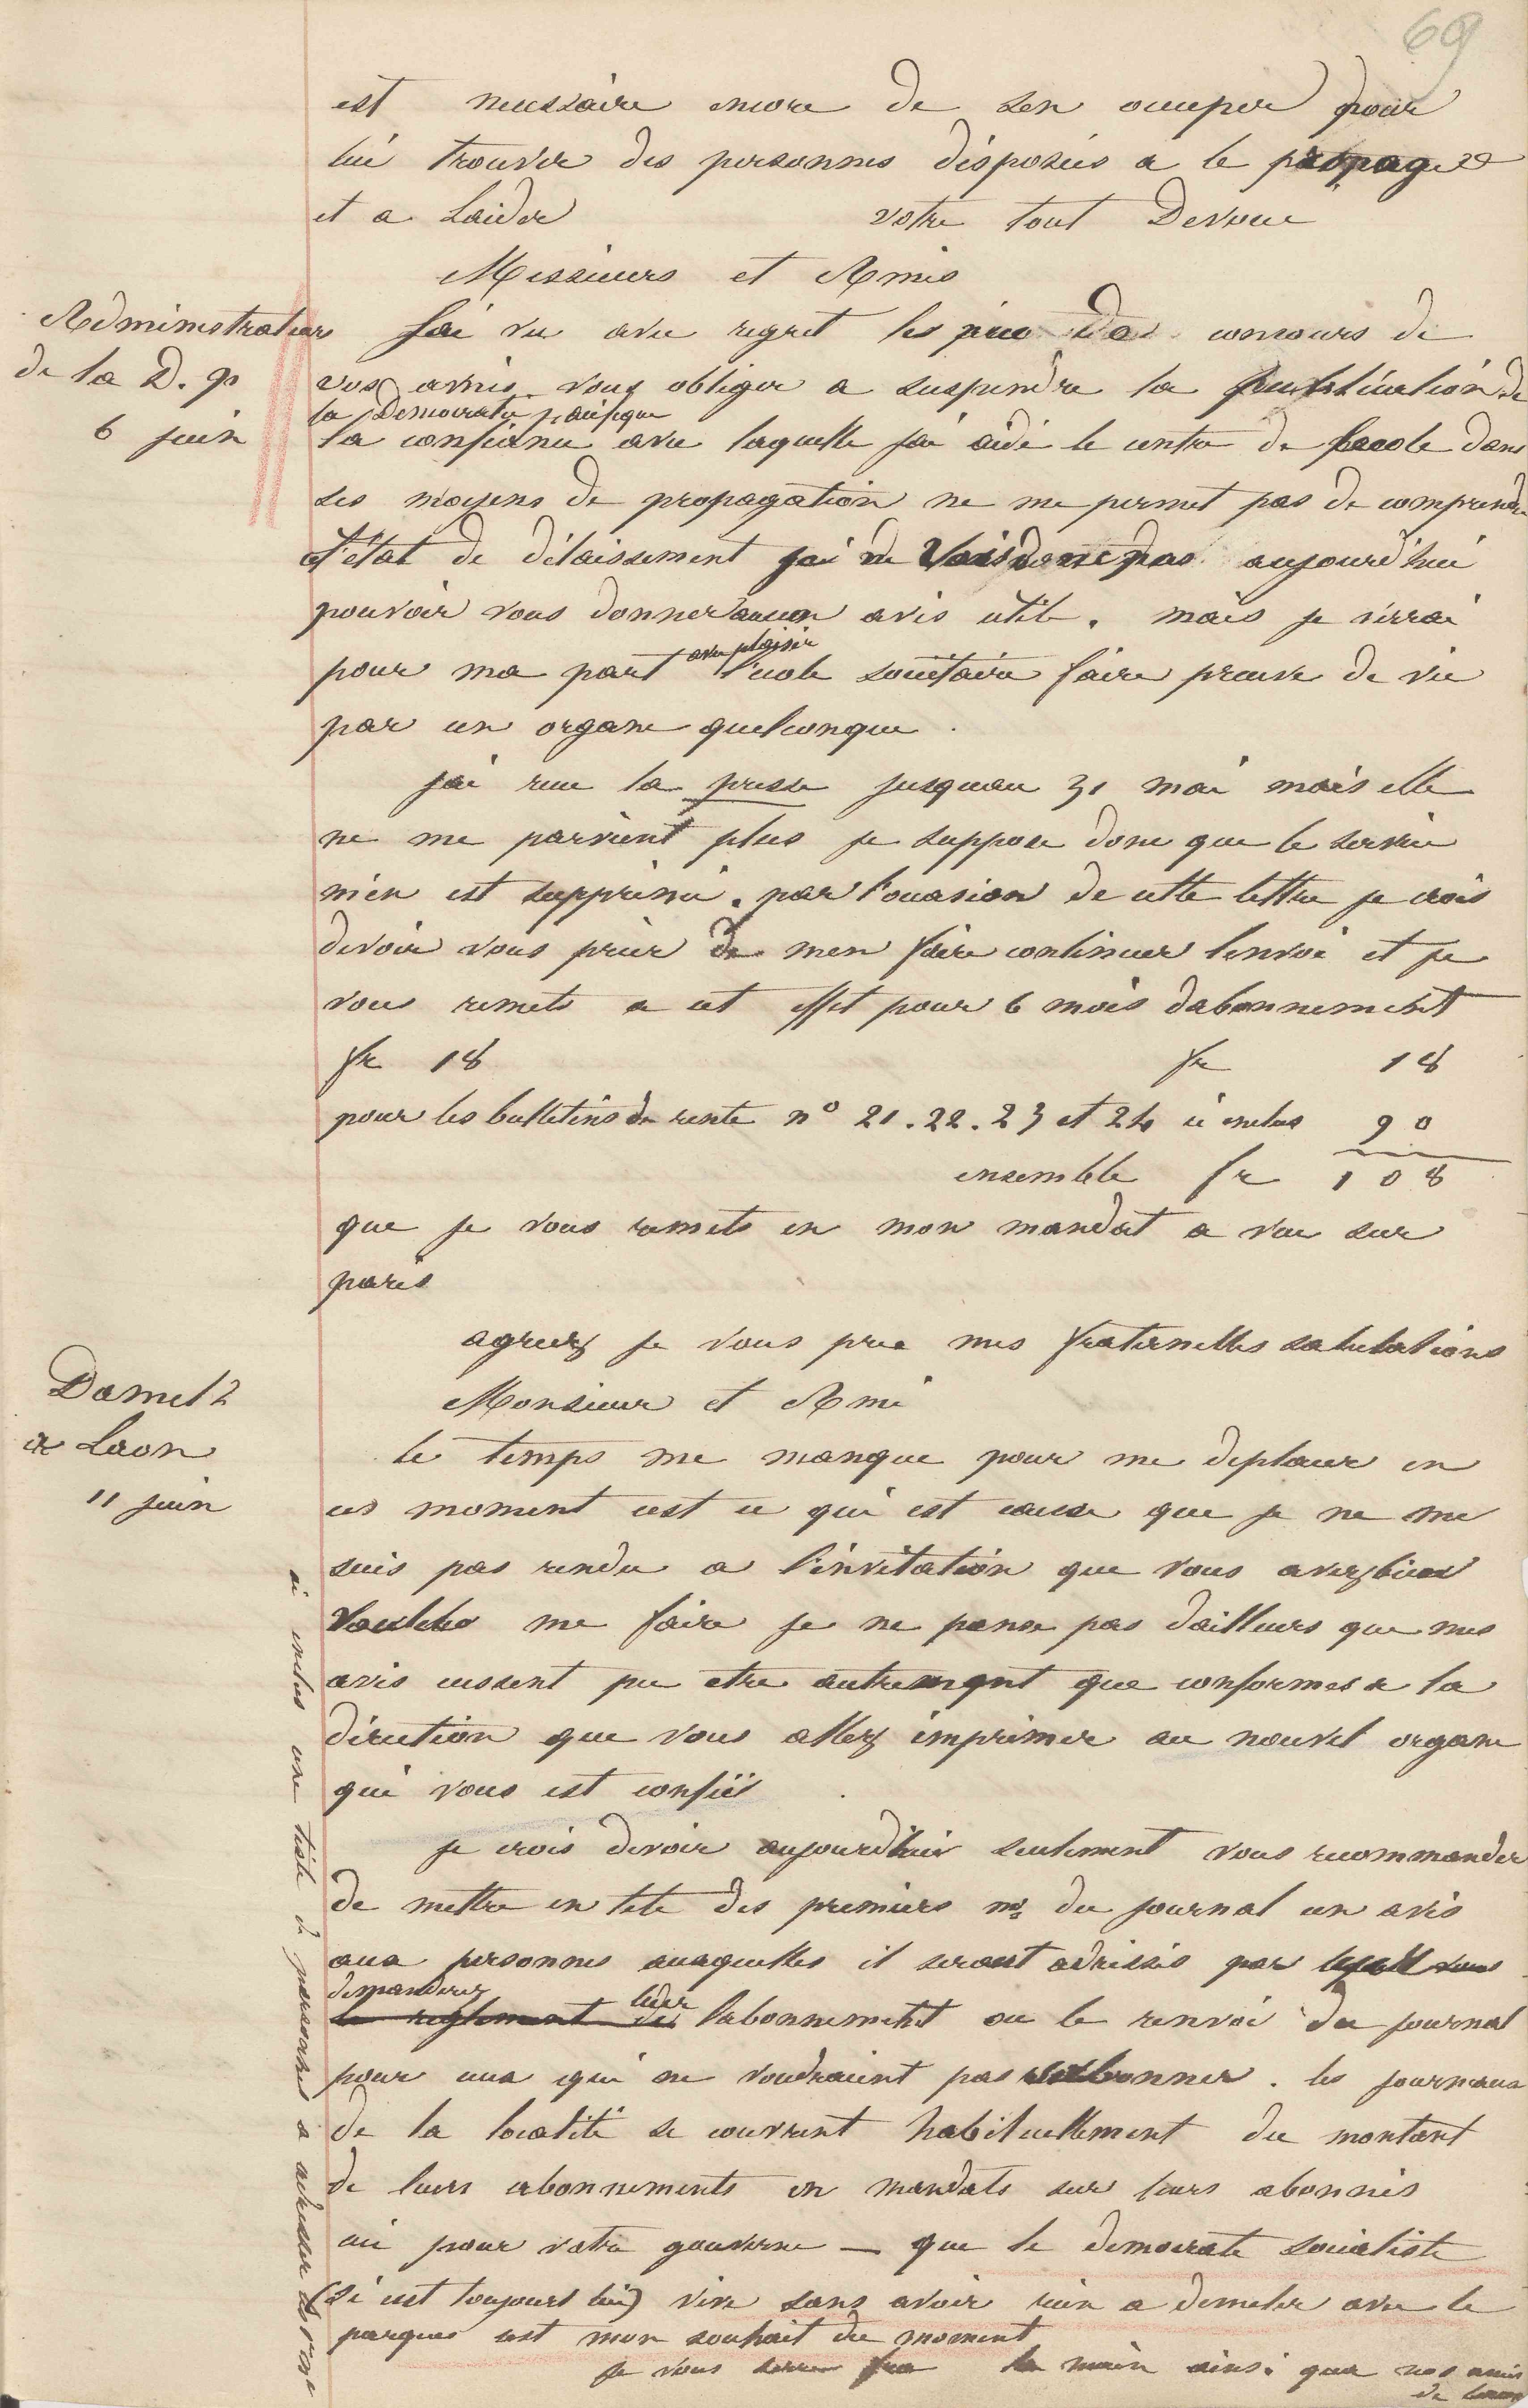 69
est necessaire encore de sen occuper pour
lui trouver des personnes disposées a le propager
et a Laider votre tout Devoue
Messieurs et Amis
Administrateurs
de la D. p
6 juin
Jai vu avec regret les peu de concours de
vos amis vous obliger a suspendre la publication de
la Democratie pacifique
la confiance avec laquelle jai aidé le centre de lecole dans
ses moyens de propagation ne me permet pas de comprendre
L'état de délaissement je ne Vois donc pas aujourd'hui
pouvoir vous donner aucun avis utile. mais je verrai
pour ma part avec plaisir l'ecole sociétaire faire preuve de vie
par un organe quelconque.
jai recu la presse jusquau 31 mai mais elle
ne me parvient plus je suppose donc que le service
m'en est supprimé. par l'occasion de cette lettre je crois
devoir vous prier de men faire continuer lenvoi et je
vous remets a cet effet pour 6 mois dabonnement
fr 18 fr 18
pour les bulletins de rente n° 21.22.23 et 24 ci inclus 90
ensemble fr 108
que je vous remets en mon mandat a vue sur
paris
agreez je vous prie mes fraternelles salutations
Dameth
a Laon
11 juin
Monsieur et Ami
le temps me manque pour me deplacer en
ces moment cest ce qui est cause que je ne me
suis pas rendu a l'invitation que vous avez bien
Voulu me faire je ne pense pas dailleurs que mes
avis eussent pu etre autrement que conformes a la
direction que vous allez imprimer au nouvel organe
qui vous est confié
je crois devoir aujourdhui seulement vous recommander
de mettre en tete des premiers nos du journal un avis
aux personnes auxquelles il seront adressés par lequel vous
demanderez
le reglement de l'abonnement ou le renvoi du journal
pour ceux qui ne voudraient pas sabonner. les journaux
de la localité se couvrent habituellement du montant
de leurs abonnements en mandats sur leurs abonnés
ceci pour votre gouverne — que le democrate socialiste
(si cest toujours lui) vive sans avoir rien a demeler avec le
parquet cest mon souhait du moment
je vous serre la main ainsi qua nos amis
de Laon
ci inclus une liste de personnes a adresser